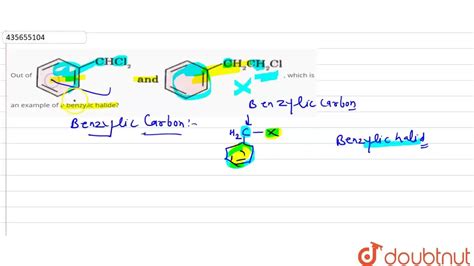 435655104
Out of CHCl₂ and CH₂CH₂Cl , which is
an example of a benzylic halide?
Benzylic Carbon
Benzylic Carbon:-
H₂C-X
Benzylic halid
doubtnut